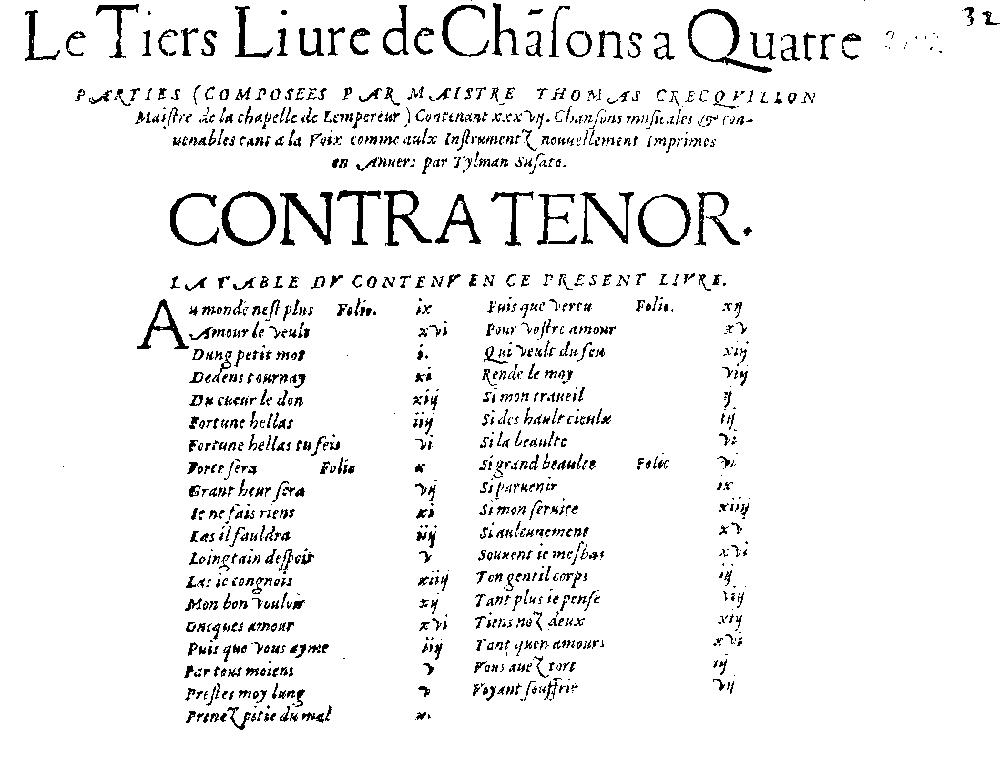 32
Le Tiers Liure de Chãſons a Quatre
PARTIES (COMPOSEES PAR MAISTRE THOMAS CRECQVILLON
Maiſtre de la chapelle de Lempereur ) Contenant xxxvij. Chanſons muſicales & con-
uenables tant a la Voix comme aulx Inſtrumentz nouuellement Imprimes
en Anuers par Tylman Suſato.
CONTRATENOR.
LA TABLE DV CONTENV EN CE PRESENT LIVRE.
Au monde neſt plus Folio. ix
Amour le veult xvi
Dung petit mot i.
Dedens tournay xi
Du cueur le don xiij
Fortune hellas iij
Fortune hellas tu feis vi
Force ſera Folio x
Grant heur ſera vij
Ie ne fais riens xi
Las il fauldra iij
Loingtain deſpoir v
Las ie congnois xiij
Mon bon vouloir xij
Oncques amour xvi
Puis que vous ayme iij
Par tous moiens v
Preſtes moy lung v
Prenez pitie du mal x.
Puis que vertu Folio. xij
Pour voſtre amour xv
Qui veult du feu xiij
Rende le moy vij
Si mon traueil ij
Si des haultz cieulx iij
Si la beaulte vi
Si grand beaulte Folio vi
Si paruenir ix
Si mon ſeruice xiiij
Si aulcunement xv
Souuent ie meſbas xvi
Ton gentil corps ij
Tant plus ie penſe iij
Tiens noz deux xij
Tant quen amours xvi
Vous auez tort ij
Voyant ſouffrir vij